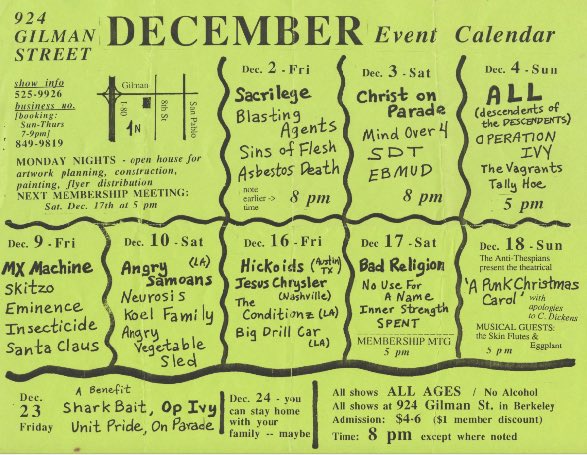 924
GILMAN
STREET
DECEMBER Event Calendar
show info
525-9926
business no.
[booking:
Sun-Thurs
7-9pm]
849-9819
Gilman
I-80
8th St
San Pablo
N
MONDAY NIGHTS - open house for
artwork planning, construction,
painting, flyer distribution
NEXT MEMBERSHIP MEETING:
Sat. Dec. 17th at 5 pm
Dec. 2 - Fri
Sacrilege
Blasting
Agents
Sins of Flesh
Asbestos Death
note
earlier ->
time
8 pm
Dec. 3 - Sat
Christ on
Parade
Mind Over 4
SDT
EBMUD
8 pm
Dec. 4 - Sun
ALL
(descendents of
the DESCENDENTS)
OPERATION
IVY
The Vagrants
Tally Hoe
5 pm
Dec. 9 - Fri
MX Machine
Skitzo
Eminence
Insecticide
Santa Claus
Dec. 10 - Sat
Angry (LA)
Samoans
Neurosis
Koel Family
Angry
Vegetable
Sled
Dec. 16 - Fri
Hickoids (Austin TX)
Jesus Chrysler
(Nashville)
The
Conditionz (LA)
Big Drill Car
(LA)
Dec 17 - Sat
Bad Religion
No Use For
A Name
Inner Strength
SPENT
MEMBERSHIP MTG
5 pm
Dec. 18 - Sun
The Anti-Thespians
present the theatrical
'A Punk Christmas
Carol' with
apologies
to C. Dickens
MUSICAL GUESTS:
the Skin Flutes &
Eggplant
5 pm
Dec.
23
Friday
A Benefit
Shark Bait, Op Ivy
Unit Pride, On Parade
Dec. 24 - you
can stay home
with your
family -- maybe
All shows ALL AGES / No Alcohol
All shows at 924 Gilman St. in Berkeley
Admission: $4-6 ($1 member discount)
Time: 8 pm except where noted